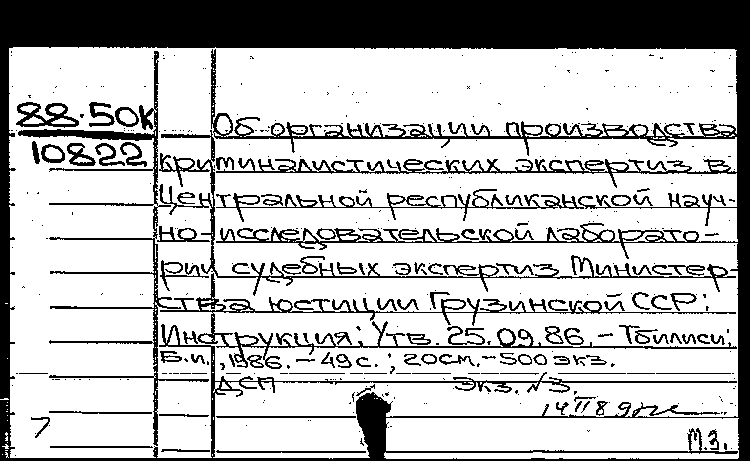 88.50к
10822
Об организации производства
криминалистических экспертиз в
Центральной республиканской науч-
но-исследовательской лаборато-
рии судебных экспертиз Министер-
ства юстиции Грузинской ССР:
Инструкция; Утв. 25.09.86. – Тбилиси;
Б.и., 1986. – 49 с.; 20см. – 500 экз.
ДСП экз. №3.
14 II 89
7
М.З.